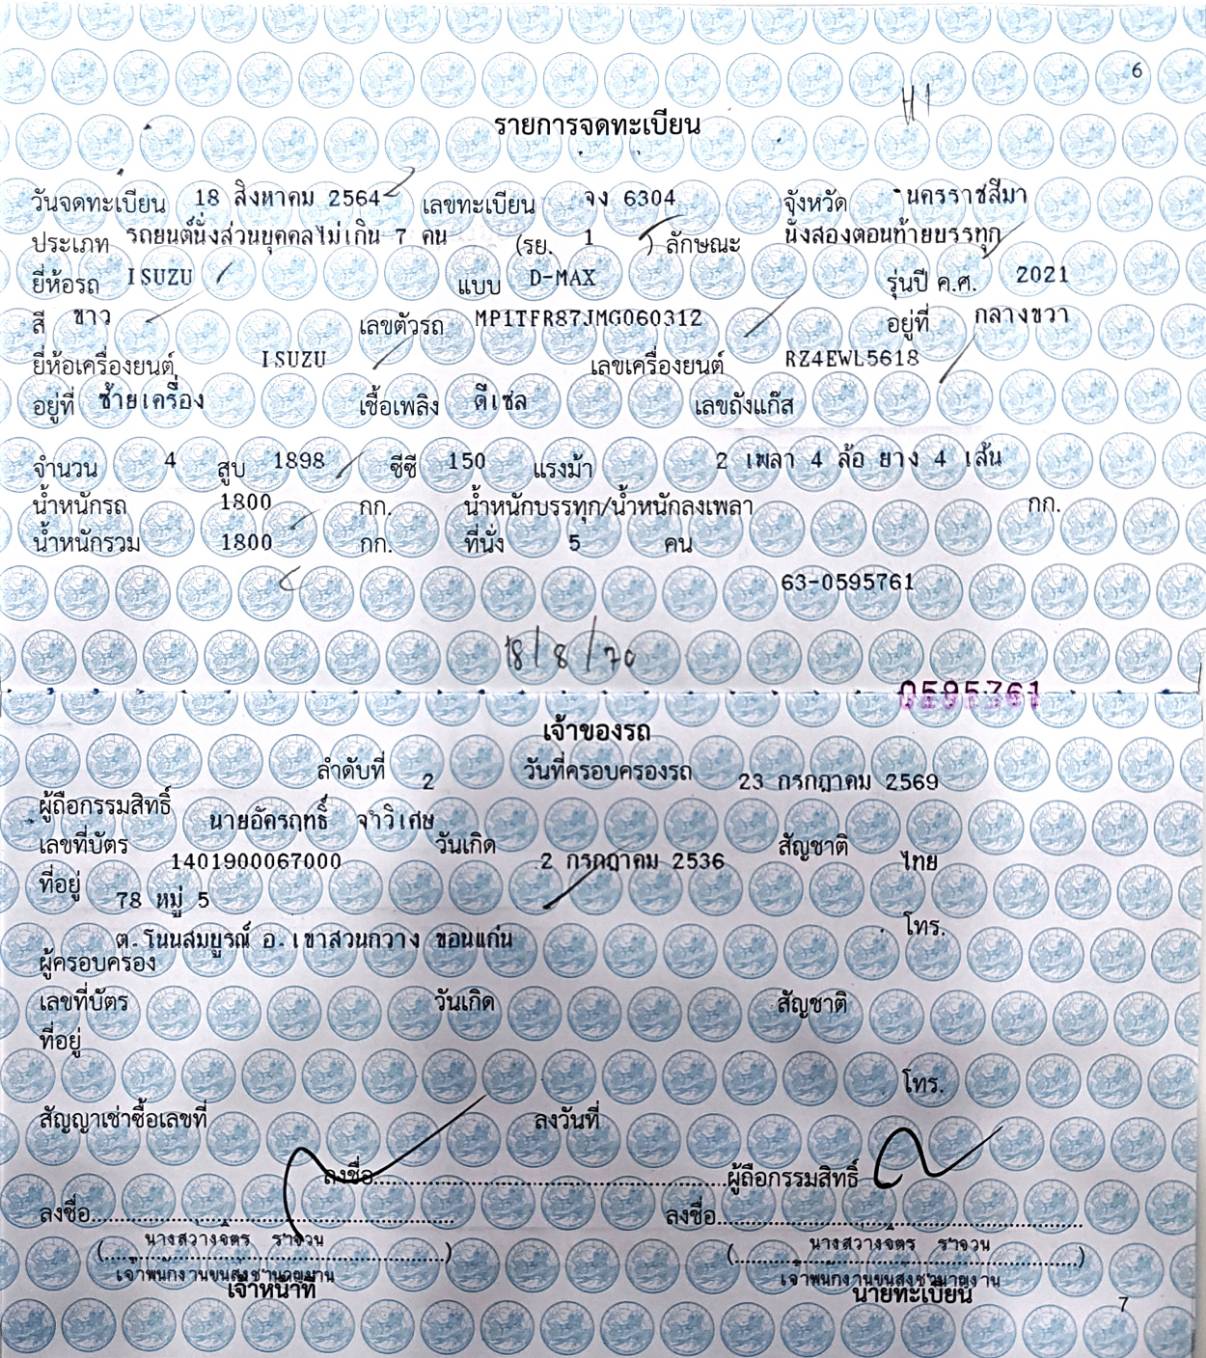 6
H1
รายการจดทะเบียน
วันจดทะเบียน 18 สิงหาคม 2564 เลขทะเบียน จง 6304 จังหวัด นครราชสีมา
ประเภท รถยนต์นั่งส่วนบุคคลไม่เกิน 7 คน (รย. 1 ) ลักษณะ นั่งสองตอนท้ายบรรทุก
ยี่ห้อรถ ISUZU แบบ D-MAX รุ่นปี ค.ศ. 2021
สี ขาว เลขตัวรถ MP1TFR87JMG060312 อยู่ที่ กลางขวา
ยี่ห้อเครื่องยนต์ ISUZU เลขเครื่องยนต์ RZ4EWL5618
อยู่ที่ ซ้ายเครื่อง เชื้อเพลิง ดีเซล เลขถังแก๊ส
จำนวน 4 สูบ 1898 ซีซี 150 แรงม้า 2 เพลา 4 ล้อ ยาง 4 เส้น
น้ำหนักรถ 1800 กก. น้ำหนักบรรทุก/น้ำหนักลงเพลา กก.
น้ำหนักรวม 1800 กก. ที่นั่ง 5 คน
63-0595761
18/8/70
0595761
เจ้าของรถ
ลำดับที่ 2 วันที่ครอบครองรถ 23 กรกฎาคม 2569
ผู้ถือกรรมสิทธิ์ นายอัครฤทธิ์ จำวิเศษ
เลขที่บัตร 1401900067000 วันเกิด 2 กรกฎาคม 2536 สัญชาติ ไทย
ที่อยู่ 78 หมู่ 5
โทร.
ต.โนนสมบูรณ์ อ.เขาสวนกวาง ขอนแก่น
ผู้ครอบครอง
เลขที่บัตร วันเกิด สัญชาติ
ที่อยู่
โทร.
สัญญาเช่าซื้อเลขที่ ลงวันที่
ลงชื่อ ผู้ถือกรรมสิทธิ์
ลงชื่อ ลงชื่อ
(นางสว่างจตร ราจวน) (นางสว่างจตร ราจวน)
เจ้าพนักงานขนส่งชำนาญงาน เจ้าพนักงานขนส่งชำนาญงาน
เจ้าหน้าที่ นายทะเบียน
7